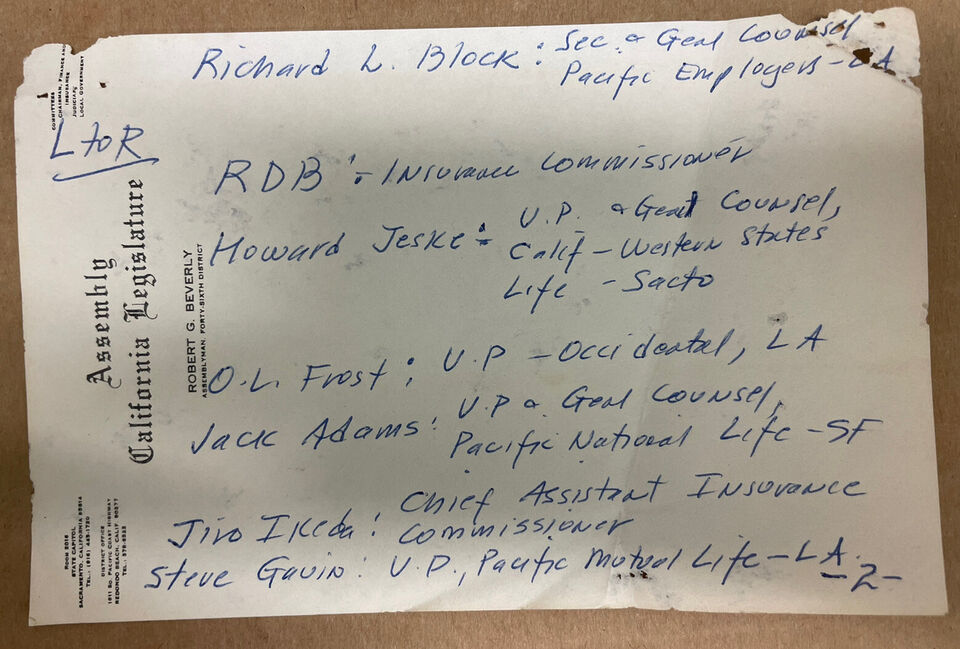 COMMITTEES
CHAIRMAN, FINANCE AND
INSURANCE
JUDICIARY
LOCAL GOVERNMENT
L to R
Assembly
California Legislature
ROBERT G. BEVERLY
ASSEMBLYMAN, FORTY-SIXTH DISTRICT
ROOM 2016
STATE CAPITOL
SACRAMENTO, CALIFORNIA 95814
TEL.: (916) 445-1720
DISTRICT OFFICE
1611 SO. PACIFIC COAST HIGHWAY
REDONDO BEACH, CALIF. 90277
TEL. 378-8522
Richard L. Block : Sec. & Genl Counsel
Pacific Employers - LA
RDB :- Insurance Commissioner
Howard Jeske : V.P. & Genl Counsel,
Calif - Western States
Life - Sacto
O.L. Frost : V.P - Occidental, LA
Jack Adams : V.P & Genl Counsel,
Pacific National Life - SF
Jiro Ikeda : Chief Assistant Insurance
Commissioner
Steve Gavin. V.P., Pacific Mutual Life - LA.
- 2 -